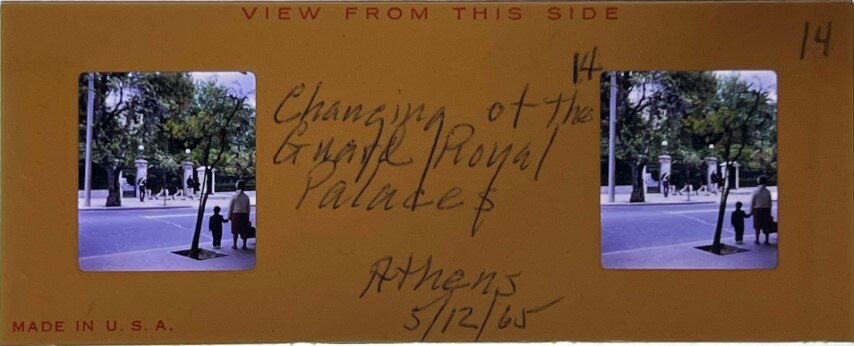 VIEW FROM THIS SIDE
14
14
Changing of the
Guard Royal
Palaces
Athens
5/12/65
MADE IN U.S.A.